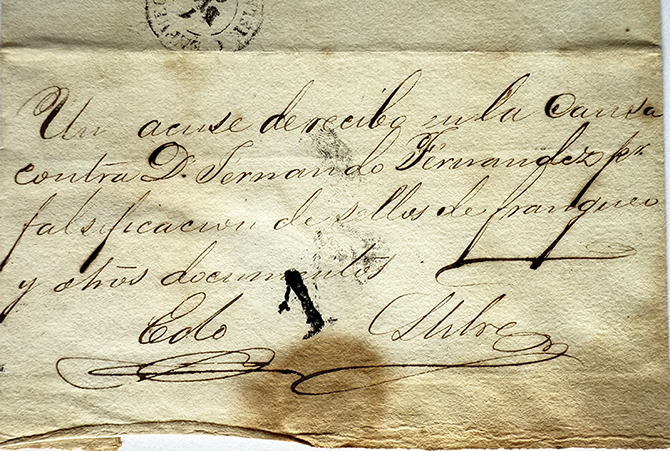 Un acuse de recibo en la Causa
contra D. Fernando Fernandez pr
falsificacion de sellos de franqueo
y otros documentos
1